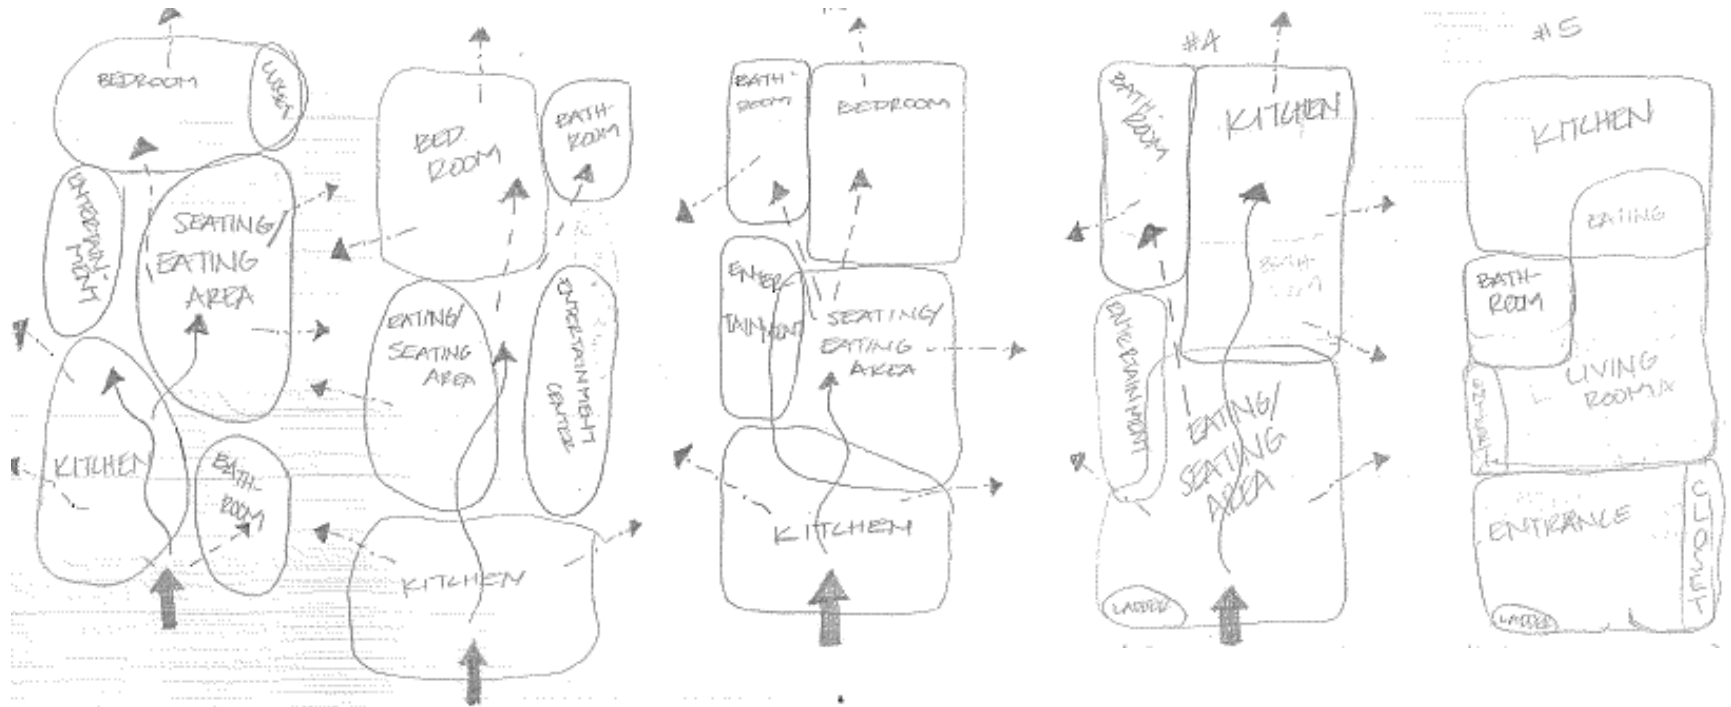 BEDROOM
CLOSET
ENTERTAIN-
MENT
SEATING/
EATING
AREA
KITCHEN
BATH-
ROOM
BED
ROOM
BATH-
ROOM
EATING/
SEATING
AREA
ENTERTAINMENT
CENTER
KITCHEN
BATH-
ROOM
BEDROOM
ENTER-
TAINMENT
SEATING/
EATING
AREA
KITCHEN
#4
BATH-
ROOM
KITCHEN
BATH-
ROOM
ENTERTAINMENT
EATING/
SEATING
AREA
LADDER
#5
KITCHEN
EATING
BATH-
ROOM
LIVING
ROOM
ENTRANCE
CLOSET
LADDER